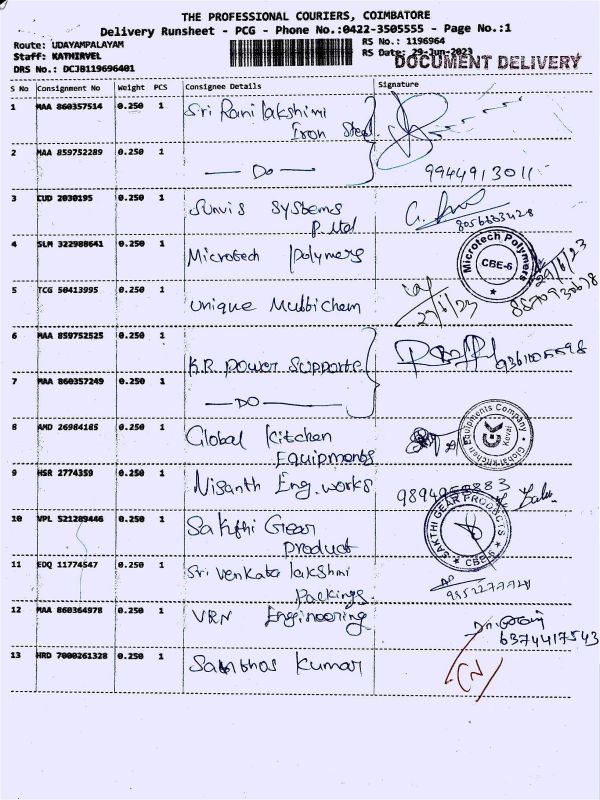 THE PROFESSIONAL COURIERS, COIMBATORE
Delivery Runsheet - PCG - Phone No.:0422-3505555 - Page No.:1
Route: UDAYAMPALAYAM
RS No.: 1196964
Staff: KATHIRVEL
RS Date: 29-Jun-2023
DRS No.: DCJB119696401
DOCUMENT DELIVERY
S No Consignment No Weight PCS Consignee Details Signature
1 MAA 860357514 0.250 1 Sri Rani lakshimi
Iron Steel
2 MAA 859752289 0.250 1 Do
9944913011
3 CUD 2030195 0.250 1 Sunvis Systems
P. ltd
4 SLM 322988641 0.250 1 Microtech Polymers
Microtech Polymers
CBE-6
5 TCG 50413995 0.250 1 Unique Multichem
29/6/23
6 MAA 859752525 0.250 1
K.R. Power Supporte
7 MAA 860357249 0.250 1
DO
8 AMD 26984185 0.250 1 Global Kitchen
Equipments
Global Kitchen Equipments Company
GK
Kovai
9 HSR 2774359 0.250 1 Nisanth Eng. works
10 VPL 521289446 0.250 1 Sakthi Gear
Product
SAKTHI GEAR PRODUCTS
CBE-6
11 EDQ 11774547 0.250 1 Sri Venkata lakshmi
Packings.
12 MAA 860364978 0.250 1 VRN Engineering
6374417543
13 HRD 7000261328 0.250 1 Santhos Kumar